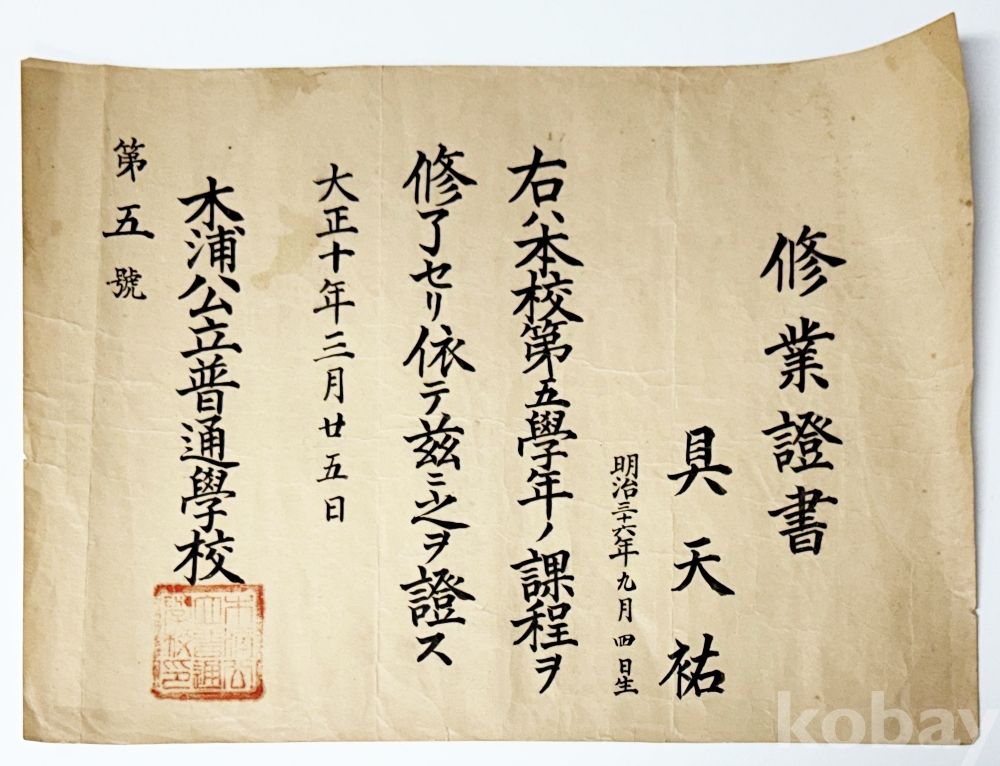 修業證書
具天祐
明治三十六年九月四日生
右ハ本校第五學年ノ課程ヲ
修了セリ依テ茲ニ之ヲ證ス
大正十年三月廿五日
木浦公立普通學校
第五號
木浦公立普通學校印
kobay